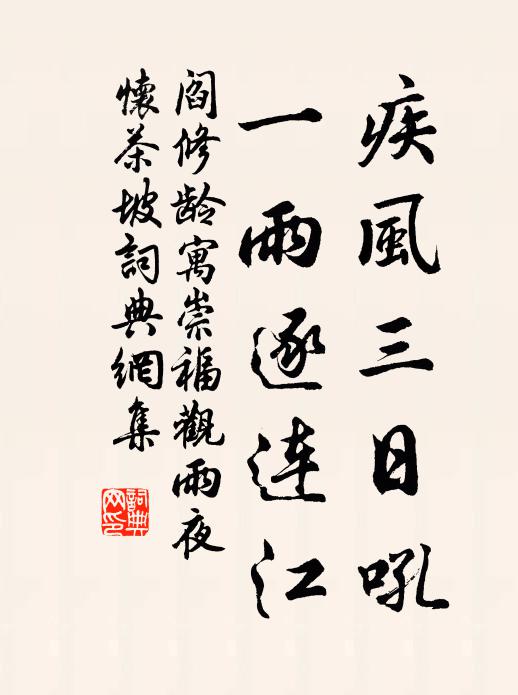 疾風三日吼
一雨逐连江
阎修龄寓崇福觀雨夜
懷茶坡詞典網集
詞典网印